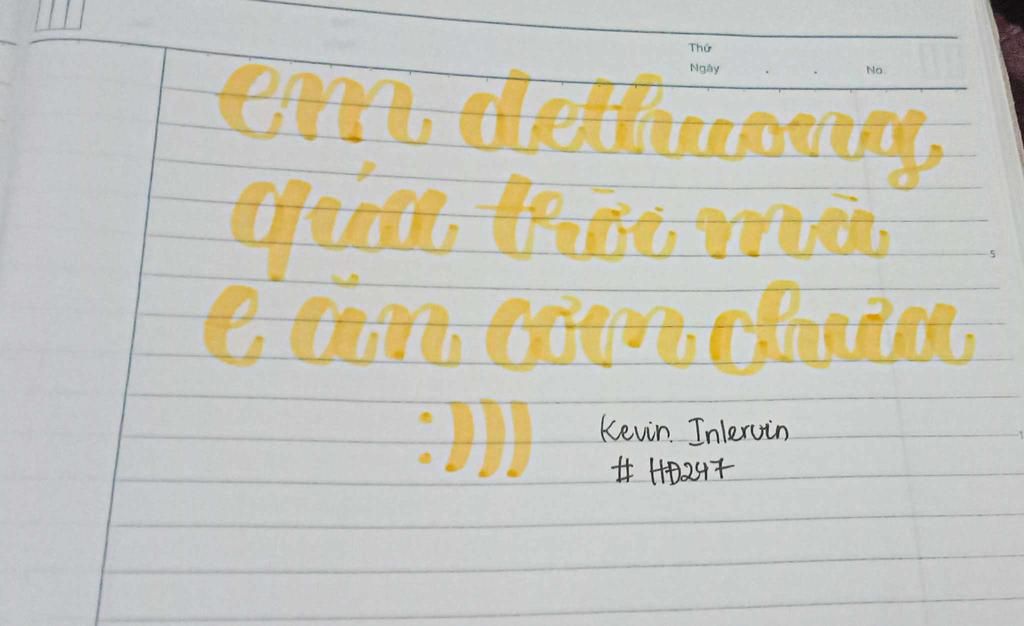 Thứ
Ngày . . No.
em dethuong
qúa trời mà
e ăn cơm chưa
5
:)))
Kevin Inlervin
# HĐ247
1